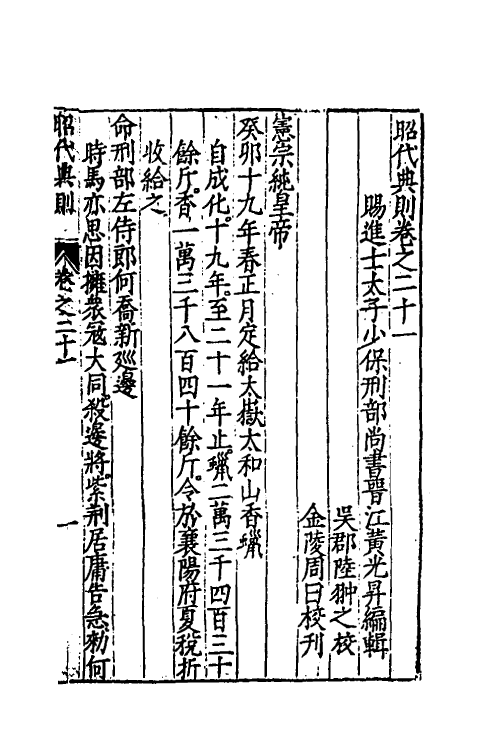 昭代典則卷之二十一
賜進士太子少保刑部尚書晉江黃光昇編輯
吳郡陸翀之校
金陵周曰校刊
憲宗純皇帝
癸卯十九年春正月定給太嶽太和山香蠟
自成化十九年至二十一年止蠟二萬三千四百三十
餘斤香一萬三千八百四十餘斤令於襄陽府夏稅折
收給之
命刑部左侍郎何喬新廵邊
時馬亦思因擁衆寇大同殺邊將紫荆居庸告急勑何
昭代典則 卷之二十一 一